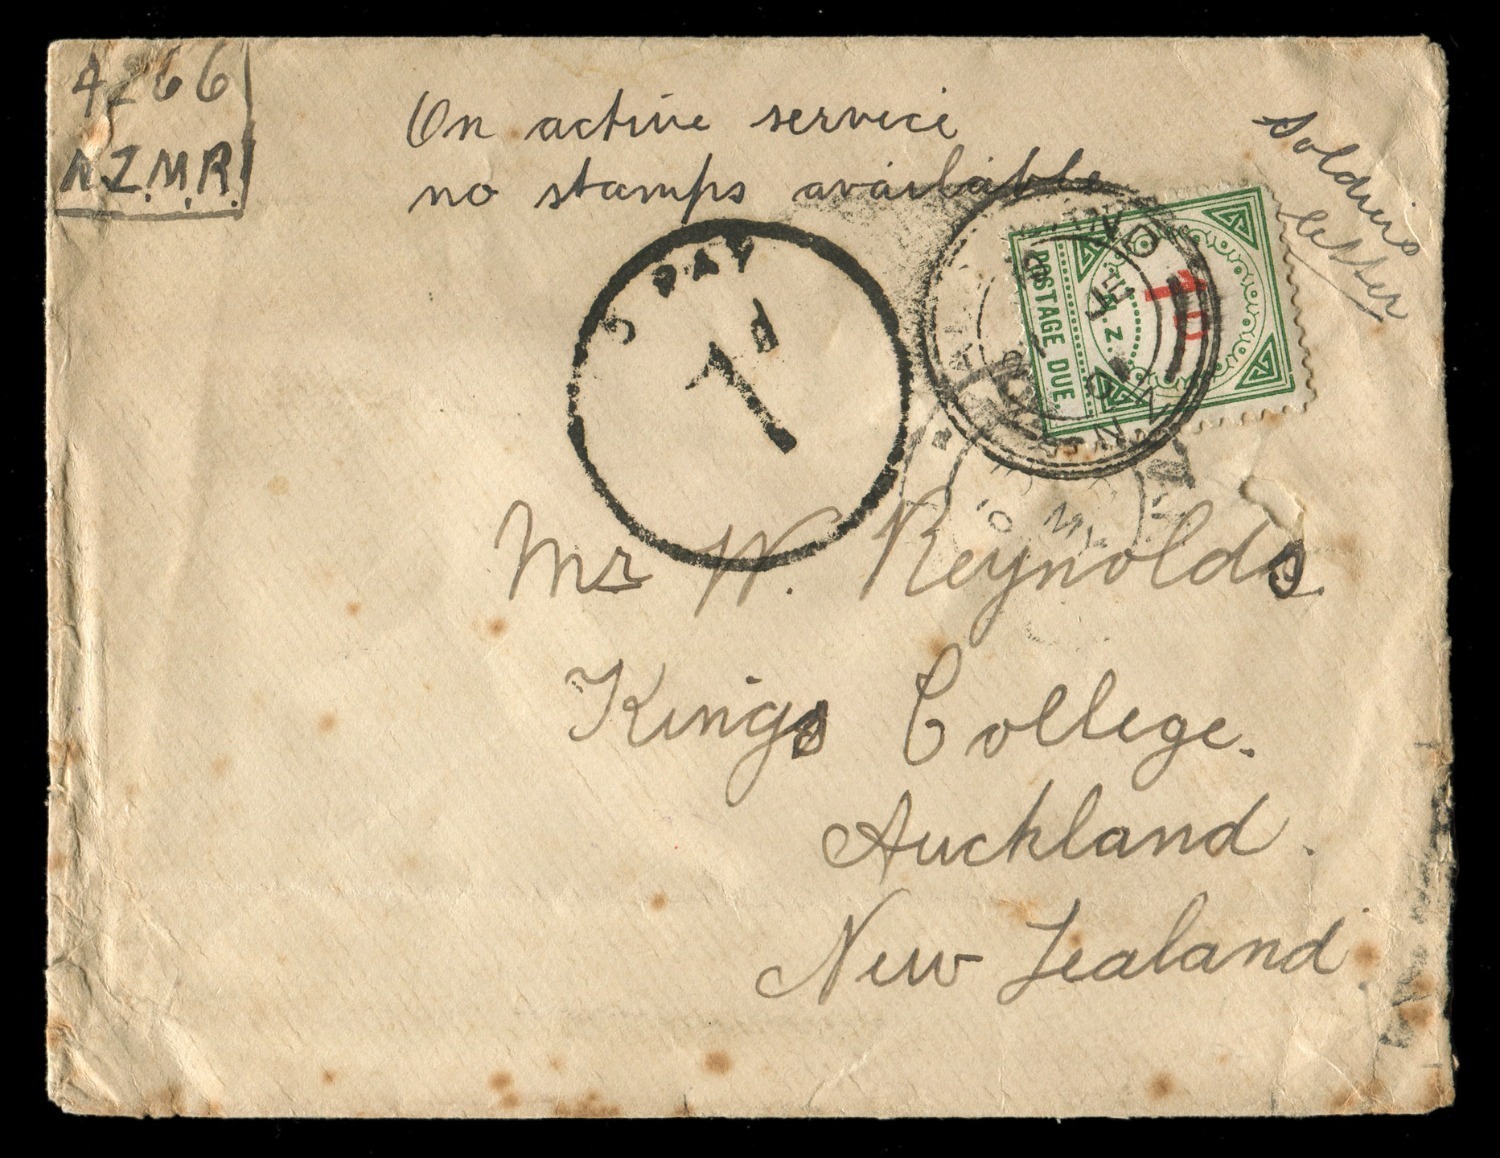 4266
N.Z.M.R.
On active service
no stamps available
Soldiers
letter
PAY
1d
POSTAGE DUE.
N.Z.
1D
Mr W. Reynolds.
Kings College.
Auckland.
New Zealand